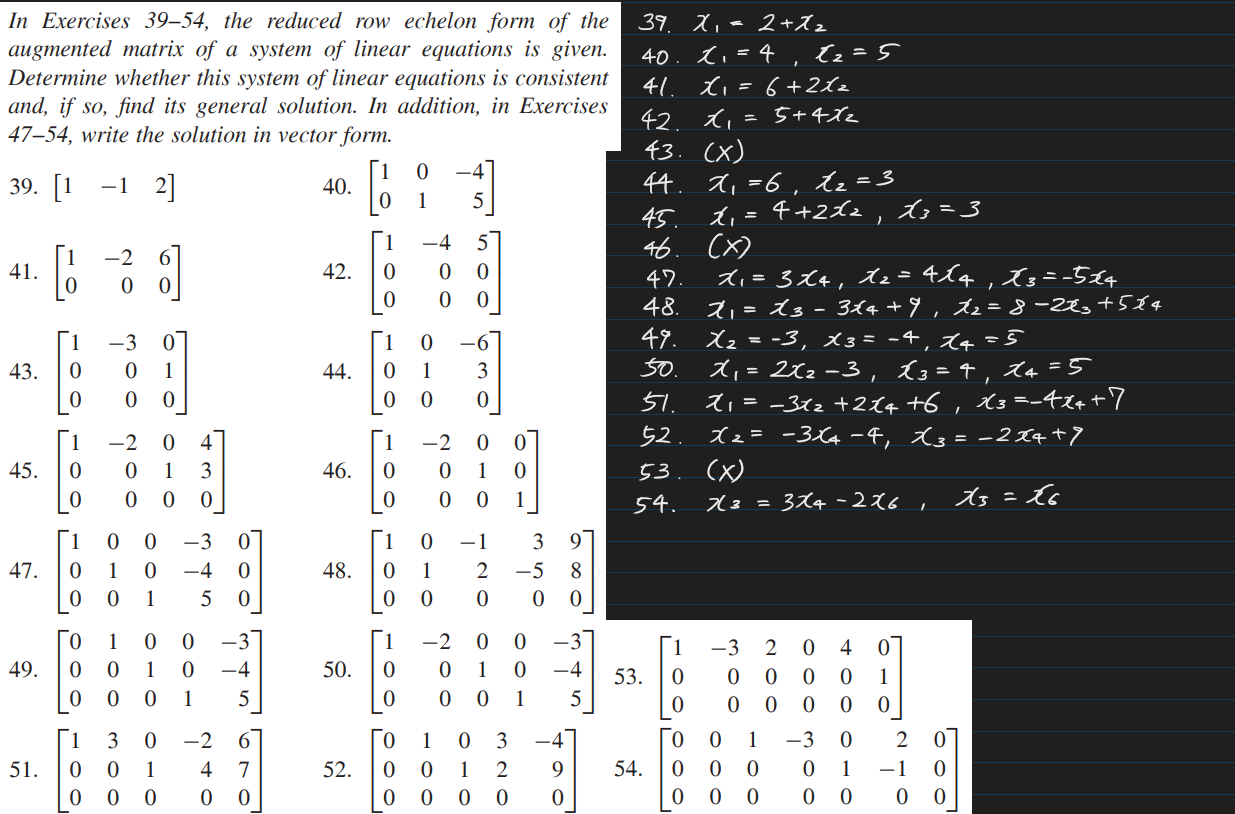 In Exercises 39–54, the reduced row echelon form of the
augmented matrix of a system of linear equations is given.
Determine whether this system of linear equations is consistent
and, if so, find its general solution. In addition, in Exercises
47–54, write the solution in vector form.
39. [1 −1 2]
40.
1 0 −4
0 1 5
41.
1 −2 6
0 0 0
42.
1 −4 5
0 0 0
0 0 0
43.
1 −3 0
0 0 1
0 0 0
44.
1 0 −6
0 1 3
0 0 0
45.
1 −2 0 4
0 0 1 3
0 0 0 0
46.
1 −2 0 0
0 0 1 0
0 0 0 1
47.
1 0 0 −3 0
0 1 0 −4 0
0 0 1 5 0
48.
1 0 −1 3 9
0 1 2 −5 8
0 0 0 0 0
49.
0 1 0 0 −3
0 0 1 0 −4
0 0 0 1 5
50.
1 −2 0 0 −3
0 0 1 0 −4
0 0 0 1 5
51.
1 3 0 −2 6
0 0 1 4 7
0 0 0 0 0
52.
0 1 0 3 −4
0 0 1 2 9
0 0 0 0 0
53.
1 −3 2 0 4 0
0 0 0 0 0 1
0 0 0 0 0 0
54.
0 0 1 −3 0 2 0
0 0 0 0 1 −1 0
0 0 0 0 0 0 0
39. x₁ = 2+x₂
40. x₁ = 4 , x₂ = 5
41. x₁ = 6+2x₂
42. x₁ = 5+4x₂
43. (X)
44. x₁ = 6 , x₂ = 3
45. x₁ = 4+2x₂ , x₃ = 3
46. (X)
47. x₁ = 3x₄ , x₂ = 4x₄ , x₃ = -5x₄
48. x₁ = x₃ - 3x₄ + 9 , x₂ = 8 - 2x₃ + 5x₄
49. x₂ = -3, x₃ = -4, x₄ = 5
50. x₁ = 2x₂ - 3 , x₃ = 4 , x₄ = 5
51. x₁ = -3x₂ + 2x₄ + 6 , x₃ = -4x₄ + 7
52. x₂ = -3x₄ - 4, x₃ = -2x₄ + 9
53. (X)
54. x₃ = 3x₄ - 2x₆ , x₅ = x₆